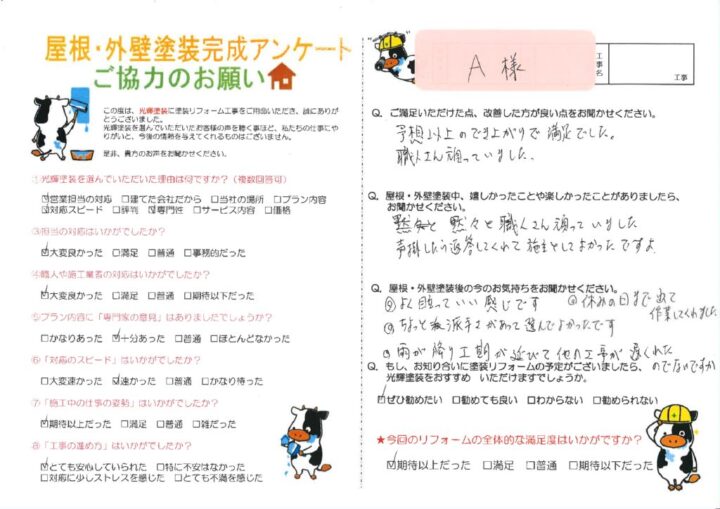 屋根・外壁塗装完成アンケート
ご協力のお願い
この度は、光輝塗装に塗装リフォーム工事をご用命いただき、誠にありが
とうございました。
光輝塗装を選んでいただいたお客様の声を聴く事ほど、私たちの仕事にや
りがいと、今後の情熱を与えてくれるものはございません。
是非、貴方のお声をお聞かせください。
①光輝塗装を選んでいただいた理由は何ですか?(複数回答可)
☑営業担当の対応 □建てた会社だから □当社の場所 □プラン内容
☑対応スピード □評判 ☑専門性 □サービス内容 □価格
③担当の対応はいかがでしたか?
☑大変良かった □満足 □普通 □事務的だった
④職人や施工業者の対応はいかがでしたか?
☑大変良かった □満足 □普通 □期待以下だった
⑤プラン内容に「専門家の意見」はありましたでしょうか?
□かなりあった ☑十分あった □普通 □ほとんどなかった
⑥「対応のスピード」はいかがでしたか?
□大変速かった ☑速かった □普通 □かなり待った
⑦「施工中の仕事の姿勢」はいかがでしたか?
☑期待以上だった □満足 □普通 □雑だった
⑧「工事の進め方」はいかがでしたか?
☑とても安心していられた □特に不安はなかった
□対応に少しストレスを感じた □とても不満を感じた
A 様
工事名
工事
Q. ご満足いただけた点、改善した方が良い点をお聞かせください。
予想以上のでき上がりで満足でした。
職人さん頑っていました。
Q. 屋根・外壁塗装中、嬉しかったことや楽しかったことがありましたら、
お聞かせください。
黙々と職人さん頑っていました
声掛したら返答してくれて施主としてよかったですよ
Q. 屋根・外壁塗装後の今のお気持ちをお聞かせください。
よく目立っていい感じです
休みの日まで出て
作業してくれました
ちょっと派手さがあって選んでよかったです
雨が降り工期が延びて他の工事が遅くれた
のでないですか
Q. もし、お知り合いに塗装リフォームの予定がございましたら、
光輝塗装をおすすめ いただけますでしょうか。
☑ぜひ勧めたい □勧めても良い □わからない □勧められない
★今回のリフォームの全体的な満足度はいかがですか?
☑期待以上だった □満足 □普通 □期待以下だった